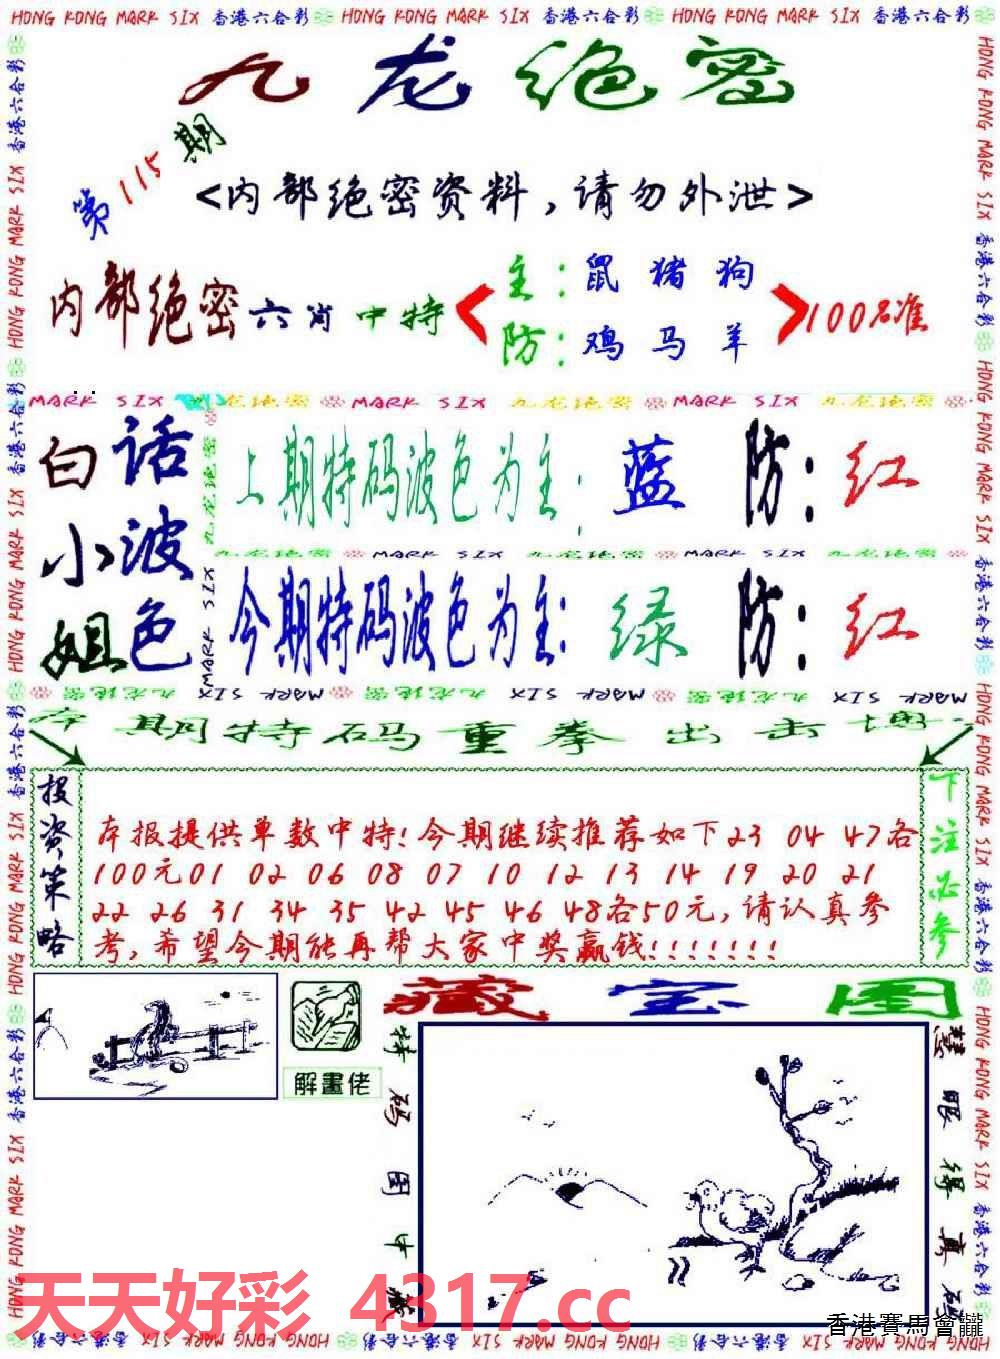 HONG KONG MARK SIX 香港六合彩 HONG KONG MARK SIX 香港六合彩 HONG KONG MARK SIX 香港六合彩
九龙绝密
第115期
<内部绝密资料,请勿外泄>
内部绝密六肖中特
主:鼠 猪 狗
防:鸡 马 羊
100%准
MARK SIX 九龙绝密 MARK SIX 九龙绝密 MARK SIX 九龙绝密
白小姐
话波色
上期特码波色为主:蓝 防:红
九龙绝密 MARK SIX 九龙绝密 MARK SIX 九龙绝密
今期特码波色为主:绿 防:红
MARK SIX 九龙绝密 MARK SIX 九龙绝密 MARK SIX 九龙绝密
本期特码重拳出击
投资策略
本报提供单数中特!今期继续推荐如下23 04 47各
100元01 02 06 08 07 10 12 13 14 19 20 21
22 26 31 34 35 42 45 46 48各50元,请认真参
考,希望今期能再帮大家中奖赢钱!!!!!!!
下注必参
解畫佬
藏宝图
特码图中藏
慧眼得真码
天天好彩 4317.cc
香港賽馬會